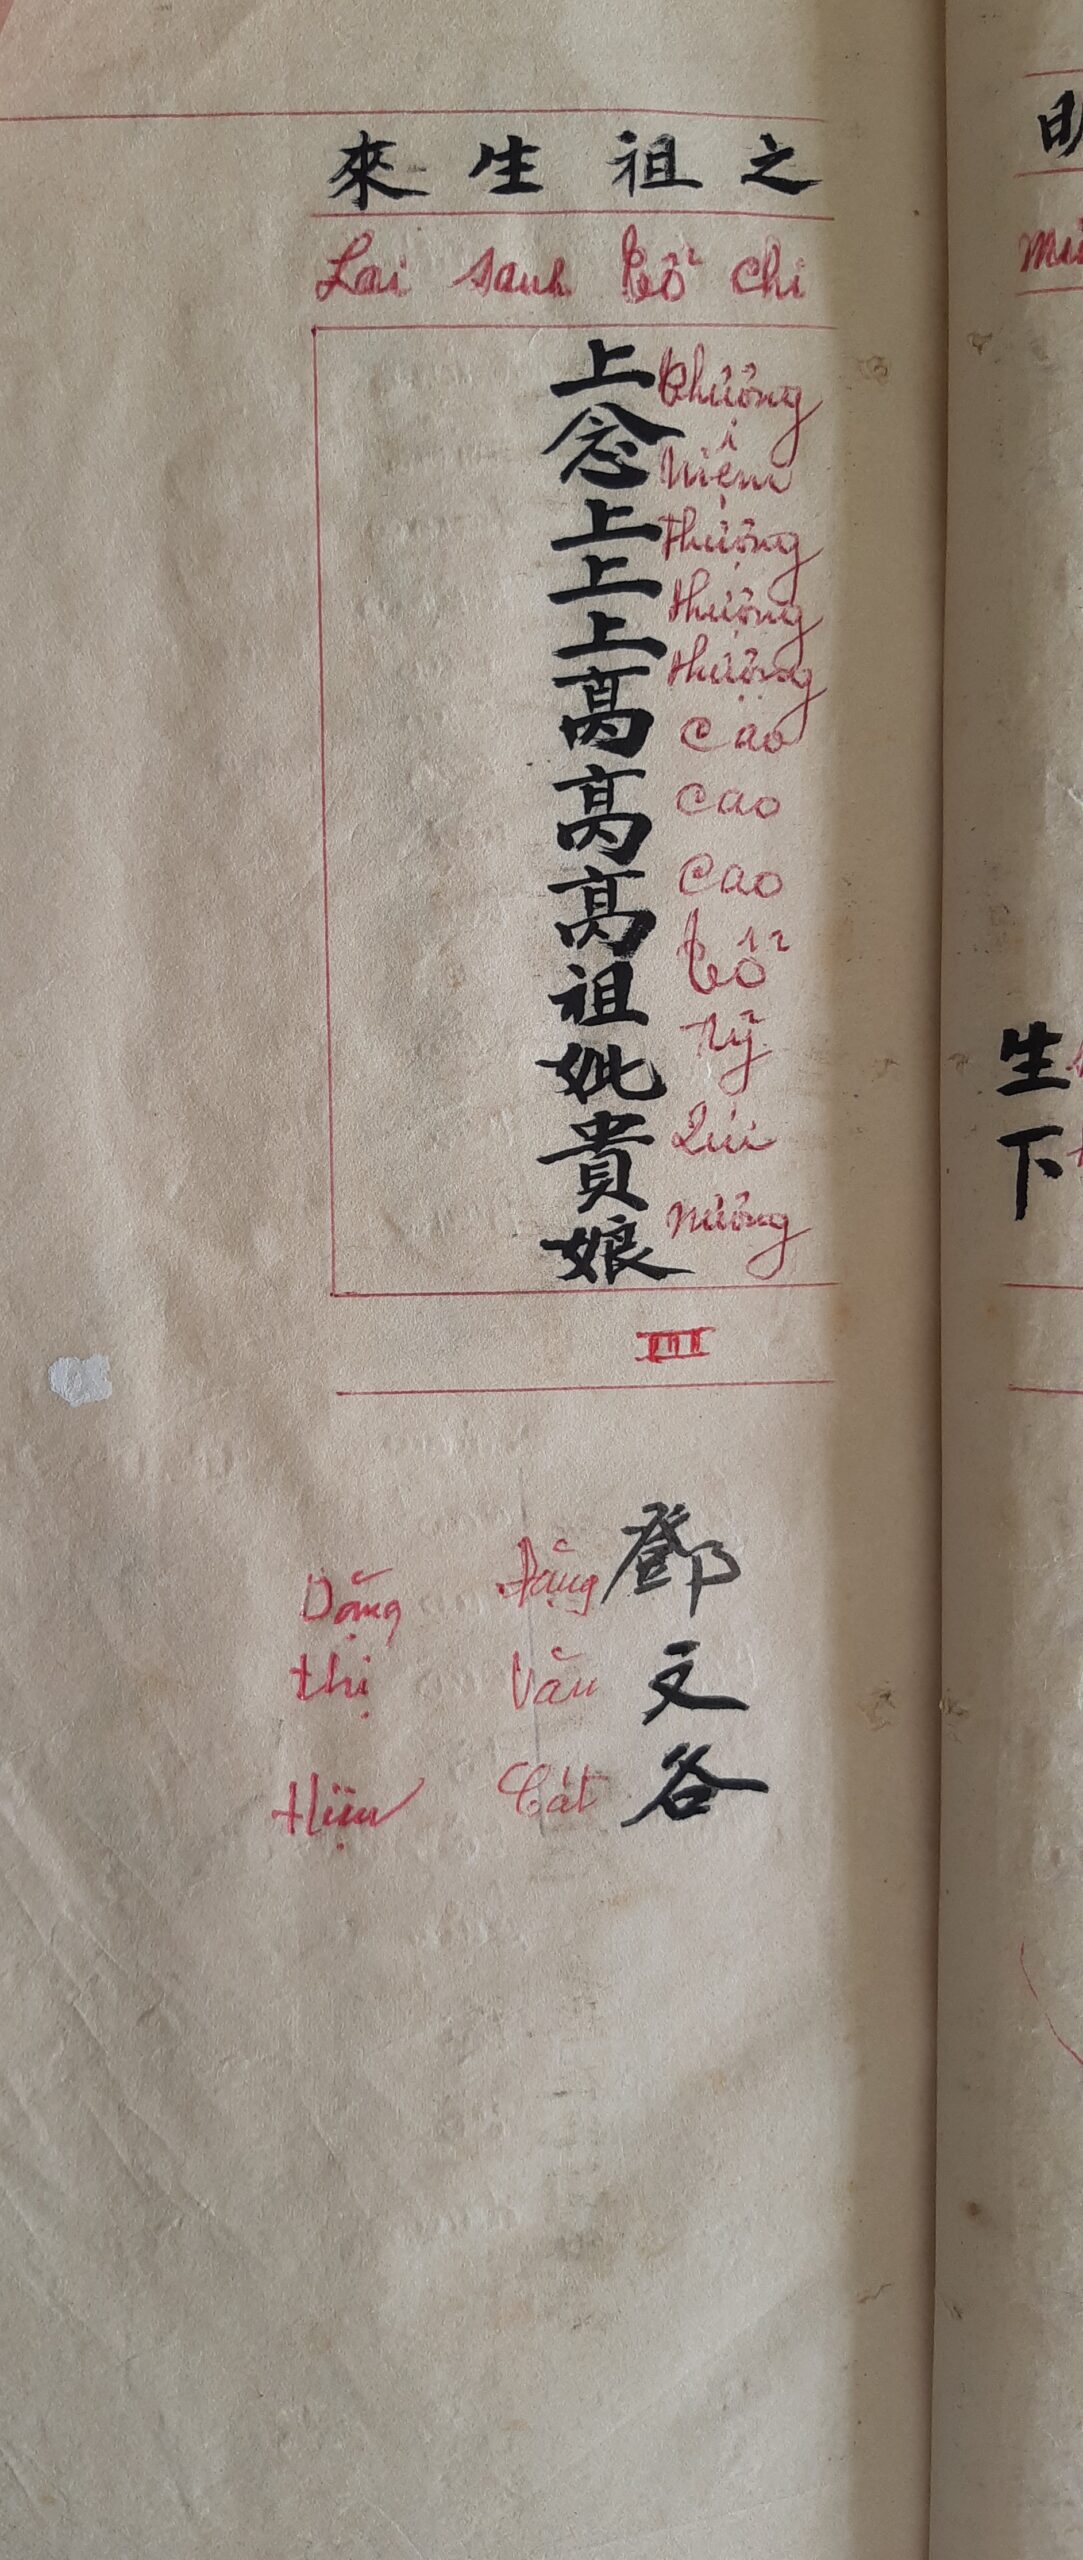 來生祖之
Lai sanh Tổ chi
上念上上上高高高祖妣貴娘
Thượng
niệm
thượng
thượng
thượng
Cao
cao
cao
tổ
tỷ
Quí
nương
III
鄧文谷
Đặng
Văn
Cát
Đặng
thị
Hiện
生下